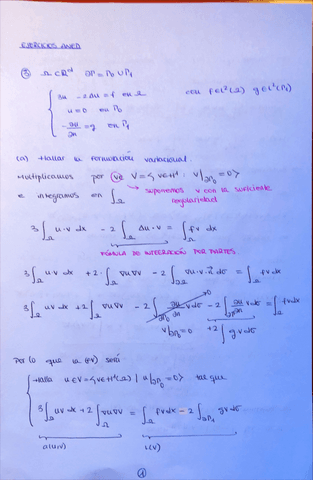 EJERCICIOS ANED
③ Ω ⊂ ℝᵈ ∂Ω = Γ₀ ∪ Γ₁
3u - 2Δu = f en Ω con f ∈ L²(Ω) g ∈ L²(Γ₁)
u = 0 en Γ₀
-∂u/∂n = g en Γ₁
(a) Hallar la formulación variacional.
Multiplicamos por v∈ V = {v∈H¹ : v|∂Γ₀ = 0}
e integramos en ∫_Ω → suponemos v con la suficiente
regularidad
3∫_Ω u·v dx - 2∫_Ω Δu·v = ∫_Ω fv dx
FÓRMULA DE INTEGRACIÓN POR PARTES
3∫_Ω u·v dx + 2·∫_Ω ∇u∇v - 2∫_∂Ω ∇u·v·n dσ = ∫_Ω fv dx
3∫_Ω uv dx + 2∫_Ω ∇u∇v - 2∫_∂Γ₀ ∂u/∂n v dσ → 0 - 2∫_∂Γ₁ ∂u/∂n v dσ = ∫_Ω fv dx
v|∂Γ₀ = 0 +2∫ g v dσ
Por lo que la (FV) será
Halla u∈V = {v∈H¹(Ω) | u|∂Γ₀ = 0} tal que
3∫_Ω uv dx + 2∫_Ω ∇u∇v = ∫_Ω fv dx - 2∫_∂Γ₁ gv dσ
a(u,v) L(v)
①